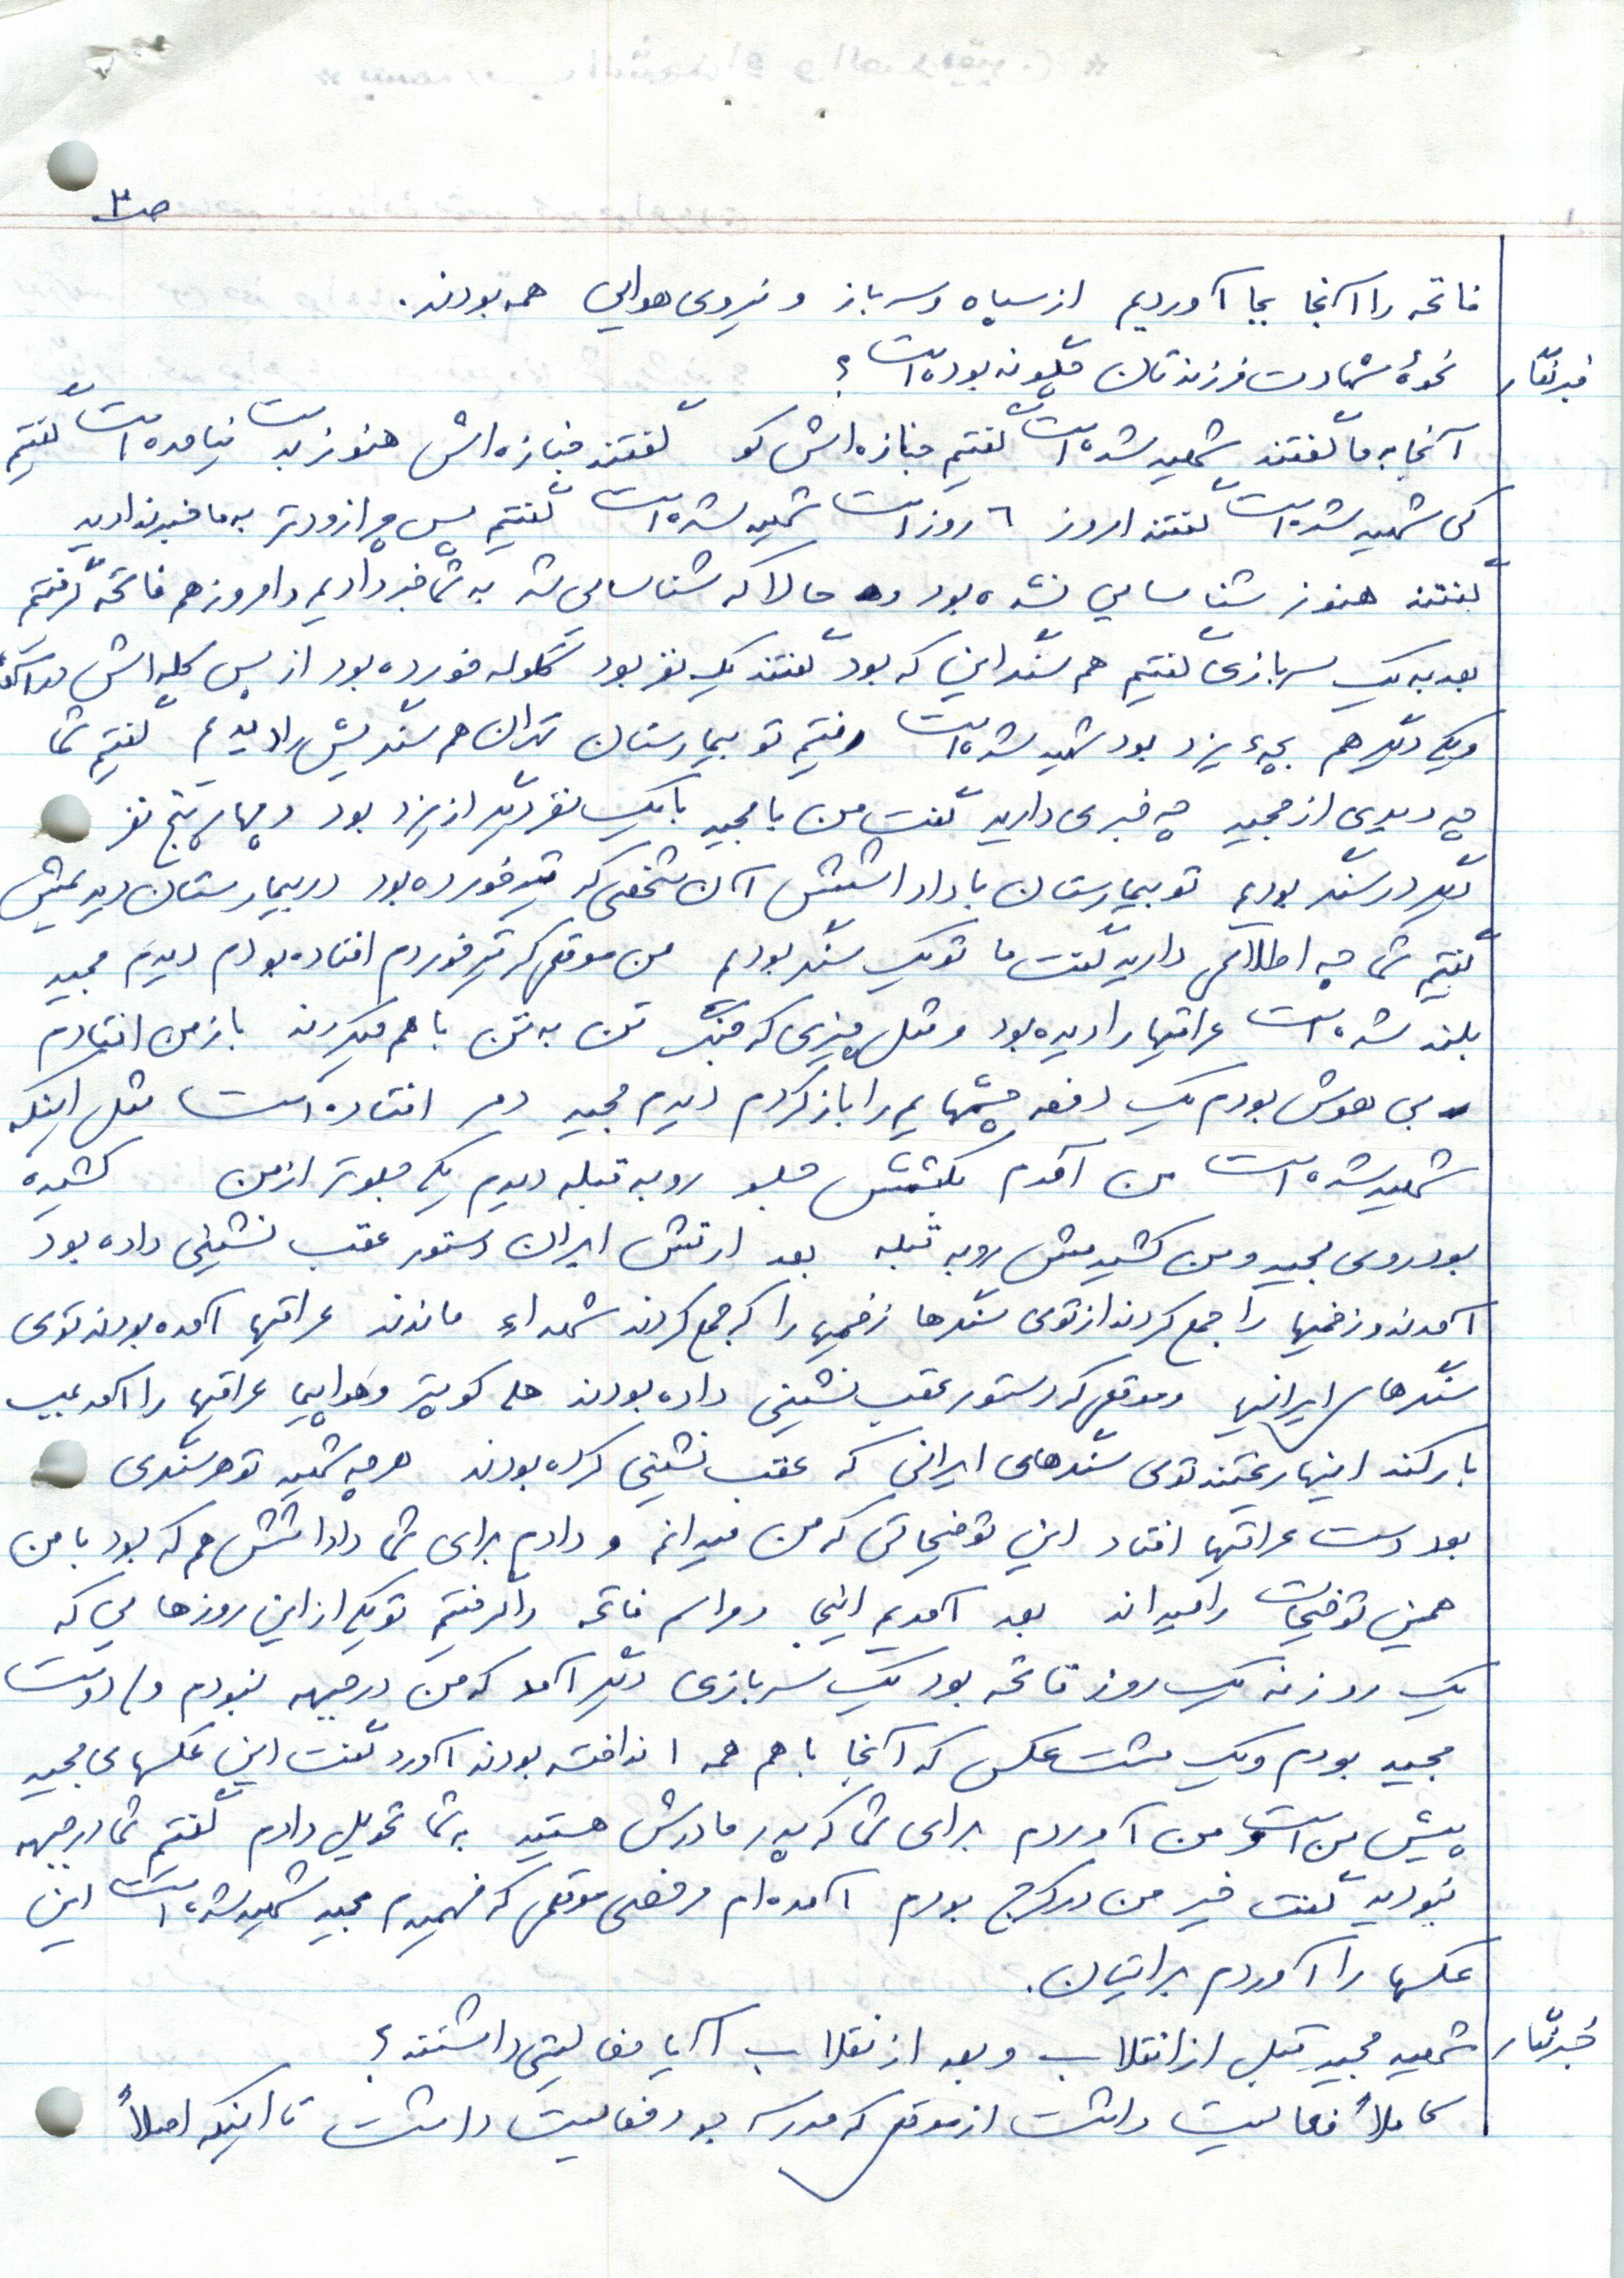 ص ۳
فاتحه را آنجا بجا آوردیم از سپاه و سرباز و نیروی هوایی همه بودند.
خبرنگار نحوهٔ شهادت فرزندتان چگونه بوده است؟
آنجا به ما گفتند شهید شده است گفتیم جنازه اش کو گفتند جنازه اش هنوز بدست نیامده است گفتیم
کی شهید شده است گفتند امروز ٦ روز است شهید شده است گفتیم پس چرا زودتر به ما خبر ندادید
گفتند هنوز شناسایی نشده بود و حالا که شناسایی شد به شما خبر دادیم و امروز هم فاتحه گرفتیم
بعد به یک سربازی گفتیم هم سنگر این که بود گفتند یک نفر بود گلوله خورده بود از پس کله اش
ویکی دیگر هم بچهٔ یزد بود شهید شده است رفتیم تو بیمارستان تهران هم سنگریش را دیدیم گفتیم شما
چه دیدی از مجید چه خبری دارید گفت من با مجید با یک نفر دیگر از یزد بود و چهار پنج نفر
دیگر در سنگر بودیم تو بیمارستان با داداشش آن شخصی که تیر خورده بود در بیمارستان دیدیمش
گفتیم شما چه اطلاعی دارید گفت ما تو یک سنگر بودیم من موقعی که تیر خوردم افتاده بودم دیدم مجید
بلند شده است عراقیها را دیده بود و مثل چیزی که جنگ تن به تن با هم میکردند باز من افتادم
بی هوش بودم یک دفعه چشمهایم را باز کردم دیدم مجید دمر افتاده است مثل اینکه
شهید شده است من آمدم بکشمش جلو رو به قبله دیدم یکی جلوتر از من کشیده
بود روی مجید و من کشیدمش رو به قبله بعد ارتش ایران دستور عقب نشینی داده بود
آمدند و زخمیها را جمع کردند از توی سنگرها زخمیها را که جمع کردند شهداء ماندند عراقیها آمده بودند توی
سنگرهای ایرانیها و موقعی که دستور عقب نشینی داده بودند هلی کوپتر و هواپیما عراقیها را آمد بمب
باران کند اینها ریختند توی سنگرهای ایرانی که عقب نشینی کرده بودند هر چه شهید تو هر سنگری
بود دست عراقیها افتاد این توضیحاتی که من میدانم و دادم برای شما داداشش هم که بود با من
همین توضیحات را میداند بعد آمدیم اینجا مراسم فاتحه را گرفتیم تو یکی از این روزهایی که
یک روز نه یک روز فاتحه بود یک سربازی دیگر آمد که من در جبهه نبودم ولی دوست
مجید بودم ویک مشت عکس که آنجا با هم همه انداخته بودند آورد گفت این عکسهای مجید
پیش من است و من آوردم برای شما که پدر مادرش هستید به شما تحویل دادم گفتم شما در جبهه
نبودید گفت خیر من در کرج بودم آمده ام مرخصی موقعی که فهمیدم مجید شهید شده است این
عکسها را آوردم براتیان.
خبرنگار شهید مجید قبل از انقلاب و بعد از نقلاب آیا فعالیتی داشتند؟
کاملاً فعالیت داشت از موقعی که مدرسه بود فعالیت داشت تا اینکه اصلاً